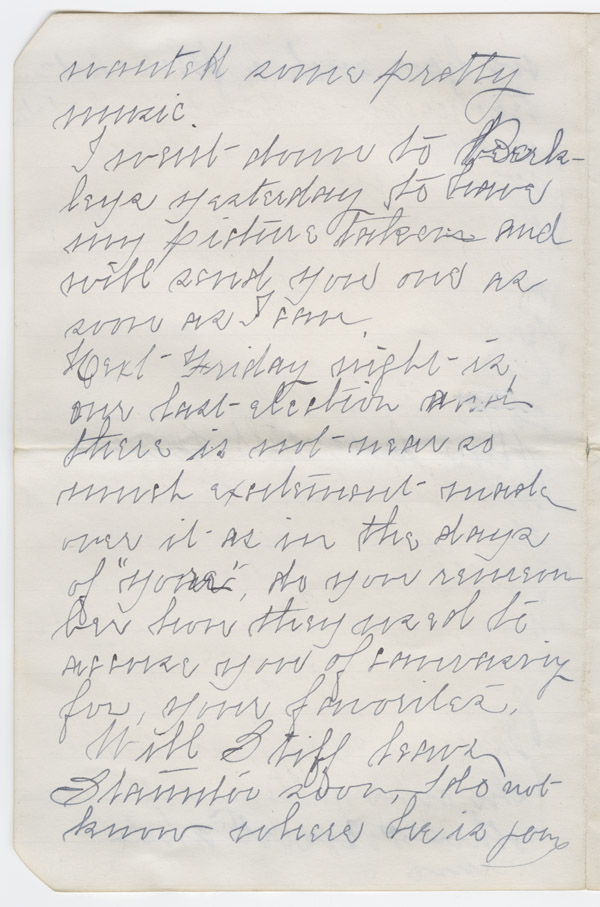 wanted some pretty
music.
I went down to Berk-
leys yesterday to have
my picture taken and
will send you one as
soon as I can.
Next Friday night is
our last election and
there is not near so
much excitement made
over it as in the days
of "yore", do you remem
ber how they used to
accuse you of canvassing
for, your favorites.
Will Stiff leave
Staunton soon, I do not
know where he is going